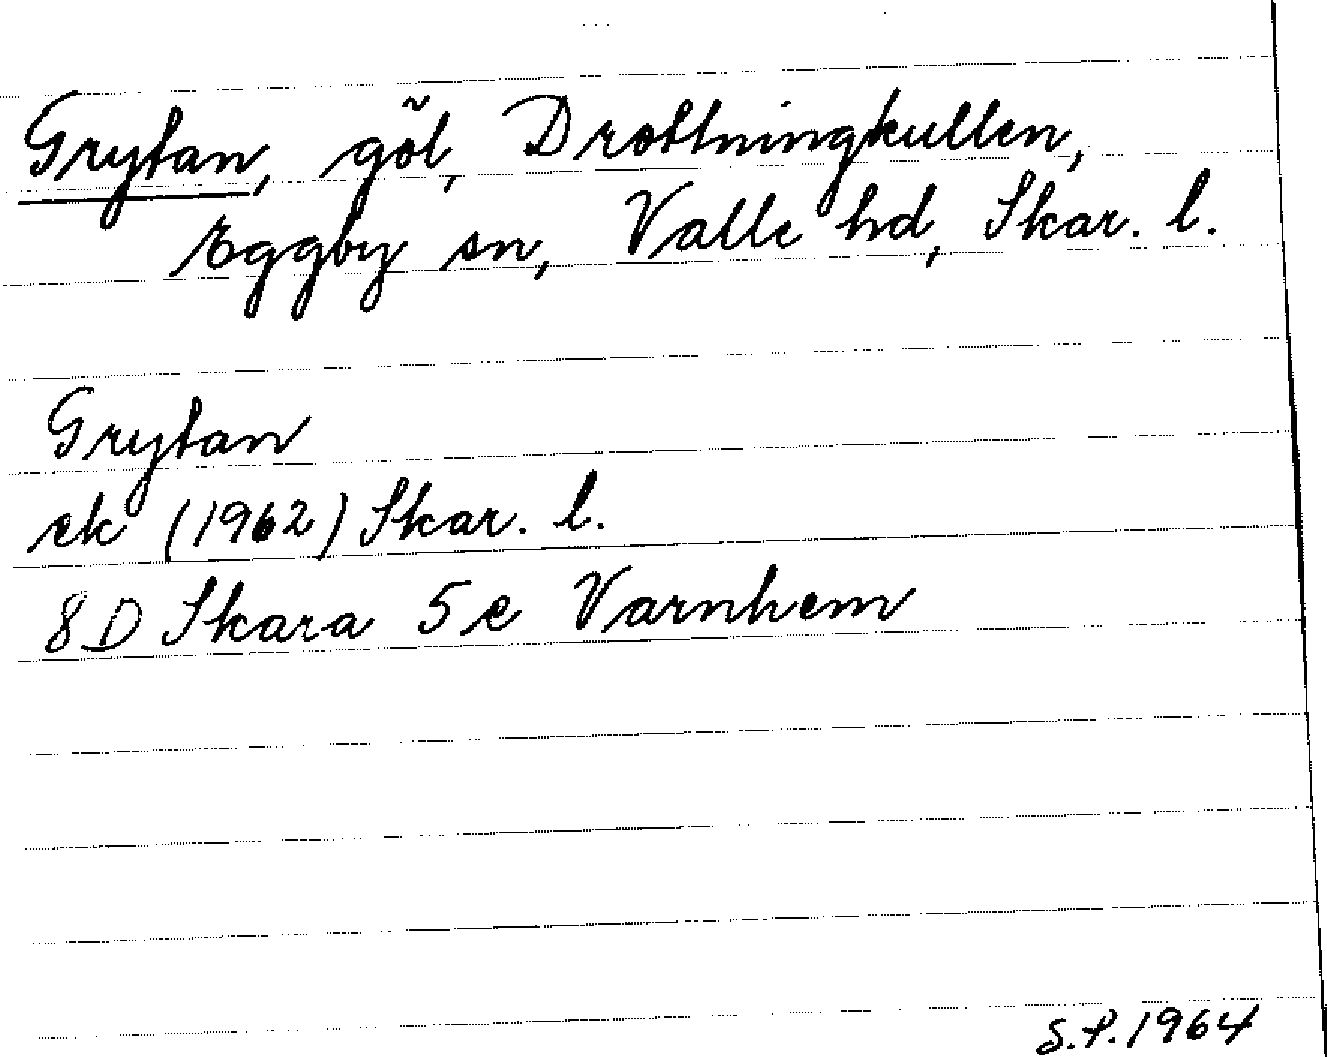 Grytan, göl, Drottningkullen,
Eggby sn, Valle hd, Skar. l.
Grytan
ek (1962) Skar. l.
8D Skara 5e Varnhem
S.P. 1964